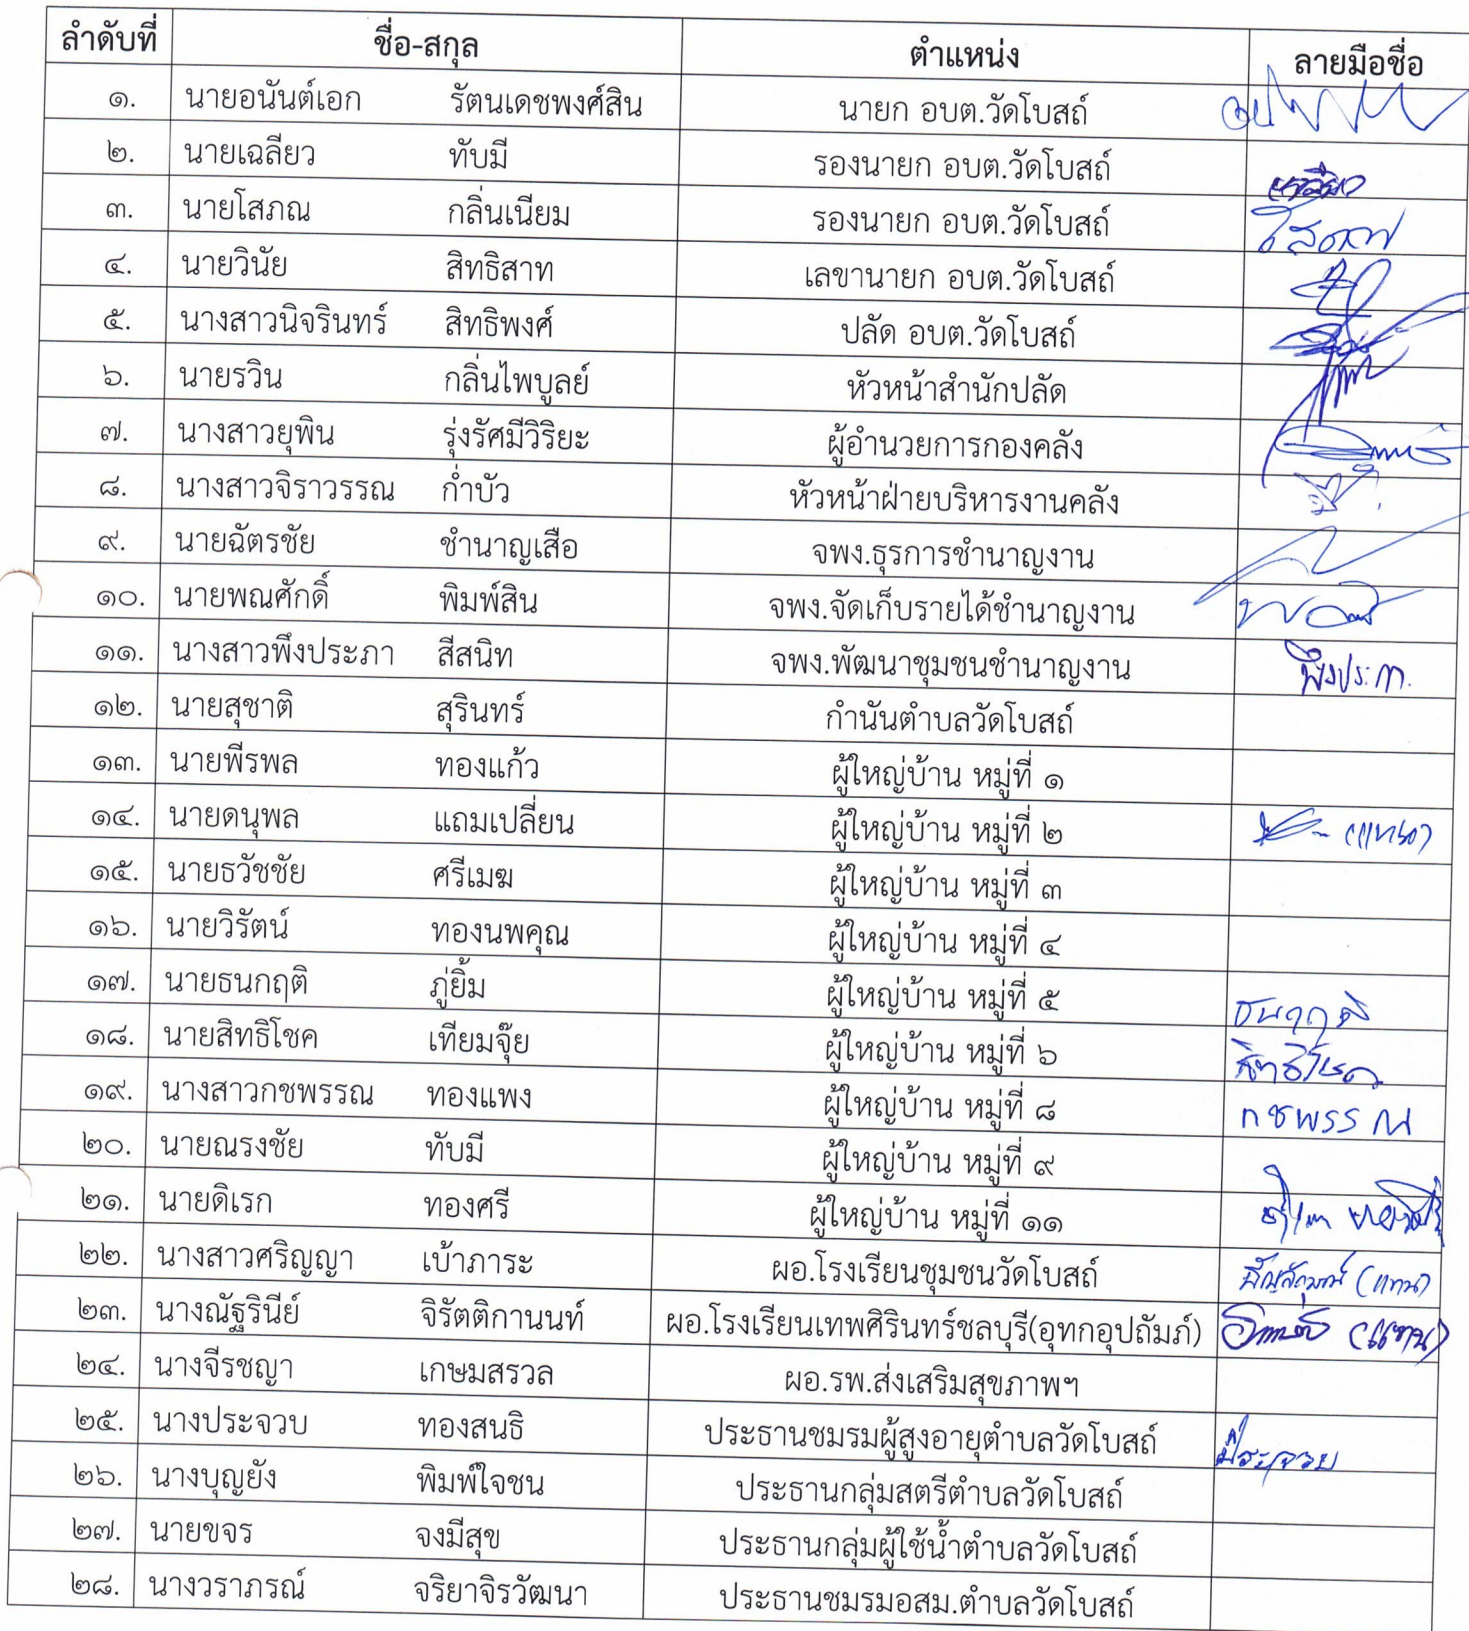 ลำดับที่ ชื่อ-สกุล ตำแหน่ง ลายมือชื่อ
๑. นายอนันต์เอก รัตนเดชพงศ์สิน นายก อบต.วัดโบสถ์
๒. นายเฉลียว ทับมี รองนายก อบต.วัดโบสถ์ เฉลียว
๓. นายโสภณ กลิ่นเนียม รองนายก อบต.วัดโบสถ์ โสภณ
๔. นายวินัย สิทธิสาท เลขานายก อบต.วัดโบสถ์
๕. นางสาวนิจรินทร์ สิทธิพงศ์ ปลัด อบต.วัดโบสถ์
๖. นายรวิน กลิ่นไพบูลย์ หัวหน้าสำนักปลัด
๗. นางสาวยุพิน รุ่งรัศมีวิริยะ ผู้อำนวยการกองคลัง
๘. นางสาวจิราวรรณ ก่ำบัว หัวหน้าฝ่ายบริหารงานคลัง
๙. นายฉัตรชัย ชำนาญเสือ จพง.ธุรการชำนาญงาน
๑๐. นายพณศักดิ์ พิมพ์สิน จพง.จัดเก็บรายได้ชำนาญงาน
๑๑. นางสาวพึงประภา สีสนิท จพง.พัฒนาชุมชนชำนาญงาน พึงประภา
๑๒. นายสุชาติ สุรินทร์ กำนันตำบลวัดโบสถ์
๑๓. นายพีรพล ทองแก้ว ผู้ใหญ่บ้าน หมู่ที่ ๑
๑๔. นายดนุพล แถมเปลี่ยน ผู้ใหญ่บ้าน หมู่ที่ ๒ (แทน)
๑๕. นายธวัชชัย ศรีเมฆ ผู้ใหญ่บ้าน หมู่ที่ ๓
๑๖. นายวิรัตน์ ทองนพคุณ ผู้ใหญ่บ้าน หมู่ที่ ๔
๑๗. นายธนกฤติ ภู่ยิ้ม ผู้ใหญ่บ้าน หมู่ที่ ๕ ธนกฤติ
๑๘. นายสิทธิโชค เทียมจุ๊ย ผู้ใหญ่บ้าน หมู่ที่ ๖ สิทธิโชค
๑๙. นางสาวกชพรรณ ทองแพง ผู้ใหญ่บ้าน หมู่ที่ ๘ กชพรรณ
๒๐. นายณรงชัย ทับมี ผู้ใหญ่บ้าน หมู่ที่ ๙
๒๑. นายดิเรก ทองศรี ผู้ใหญ่บ้าน หมู่ที่ ๑๑ ดิเรก ทองศรี
๒๒. นางสาวศริญญา เบ้าภาระ ผอ.โรงเรียนชุมชนวัดโบสถ์ (แทน)
๒๓. นางณัฐรินีย์ จิรัตติกานนท์ ผอ.โรงเรียนเทพศิรินทร์ชลบุรี(อุทกอุปถัมภ์) (แทน)
๒๔. นางจีรชญา เกษมสรวล ผอ.รพ.ส่งเสริมสุขภาพฯ
๒๕. นางประจวบ ทองสนธิ ประธานชมรมผู้สูงอายุตำบลวัดโบสถ์ ประจวบ
๒๖. นางบุญยัง พิมพ์ใจชน ประธานกลุ่มสตรีตำบลวัดโบสถ์
๒๗. นายขจร จงมีสุข ประธานกลุ่มผู้ใช้น้ำตำบลวัดโบสถ์
๒๘. นางวราภรณ์ จริยาจิรวัฒนา ประธานชมรมอสม.ตำบลวัดโบสถ์